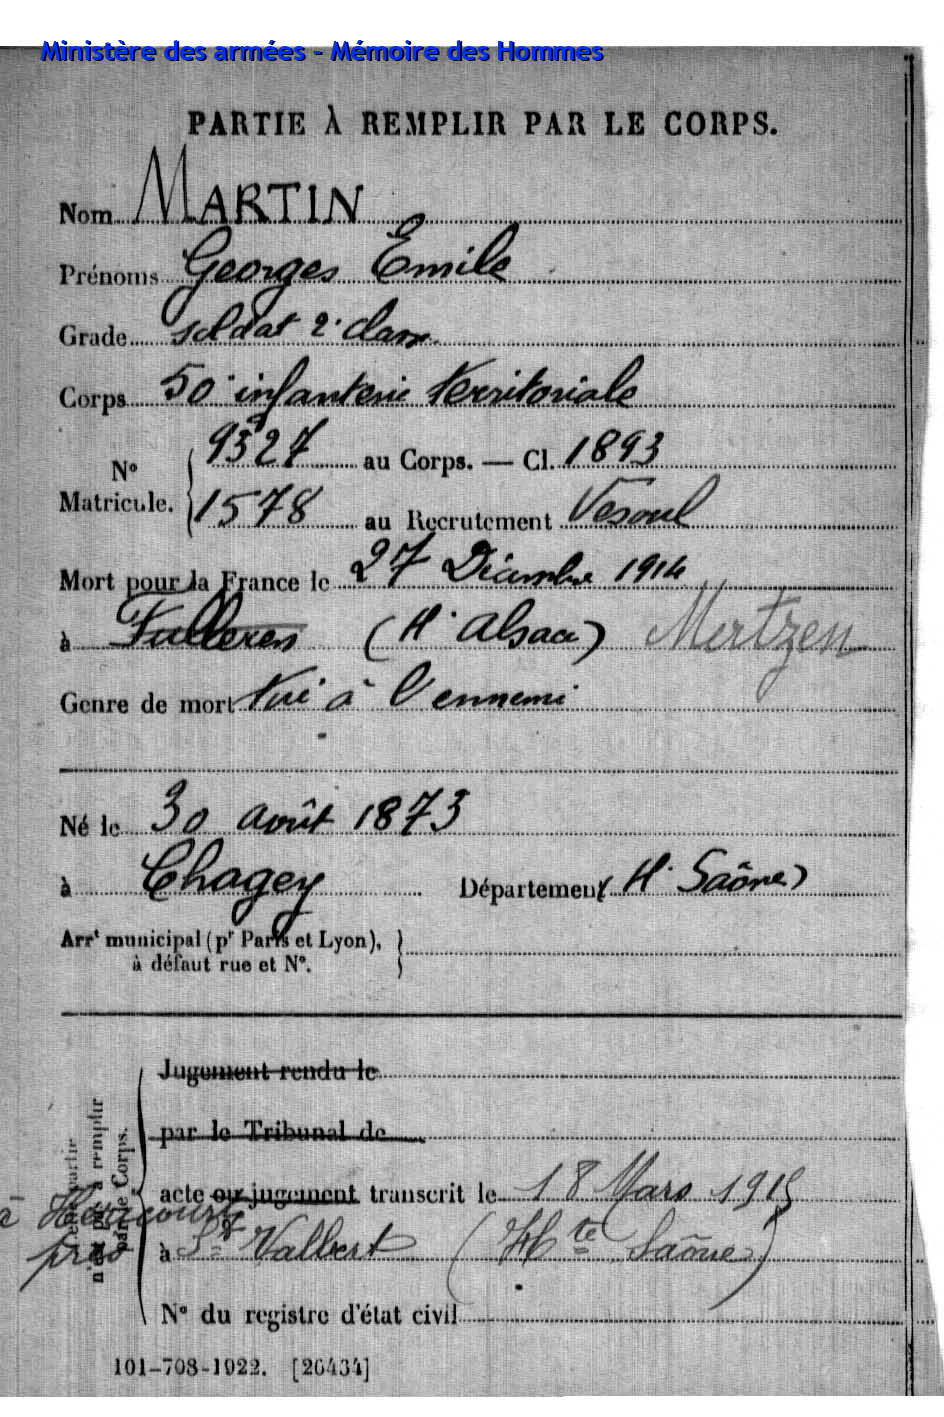 Ministère des armées - Mémoire des Hommes
PARTIE À REMPLIR PAR LE CORPS.
Nom MARTIN
Prénoms Georges Emile
Grade soldat 2e classe
Corps 50e infanterie territoriale
N° Matricule. 9327 au Corps. — Cl. 1893
1578 au Recrutement Vesoul
Mort pour la France le 27 Décembre 1914
à Fulleren (Hte Alsace) Mertzen
Genre de mort Tué à l'ennemi
Né le 30 août 1873
à Chagey Département (H. Saône)
Arrt municipal (pr Paris et Lyon),
à défaut rue et N°.
Jugement rendu le
par le Tribunal de
acte ou jugement transcrit le 18 Mars 1915
à St Valbert (Hte Saône)
près Héricourt
N° du registre d'état civil
n'est pas à remplir
par le Corps.
101-708-1922. [26434]